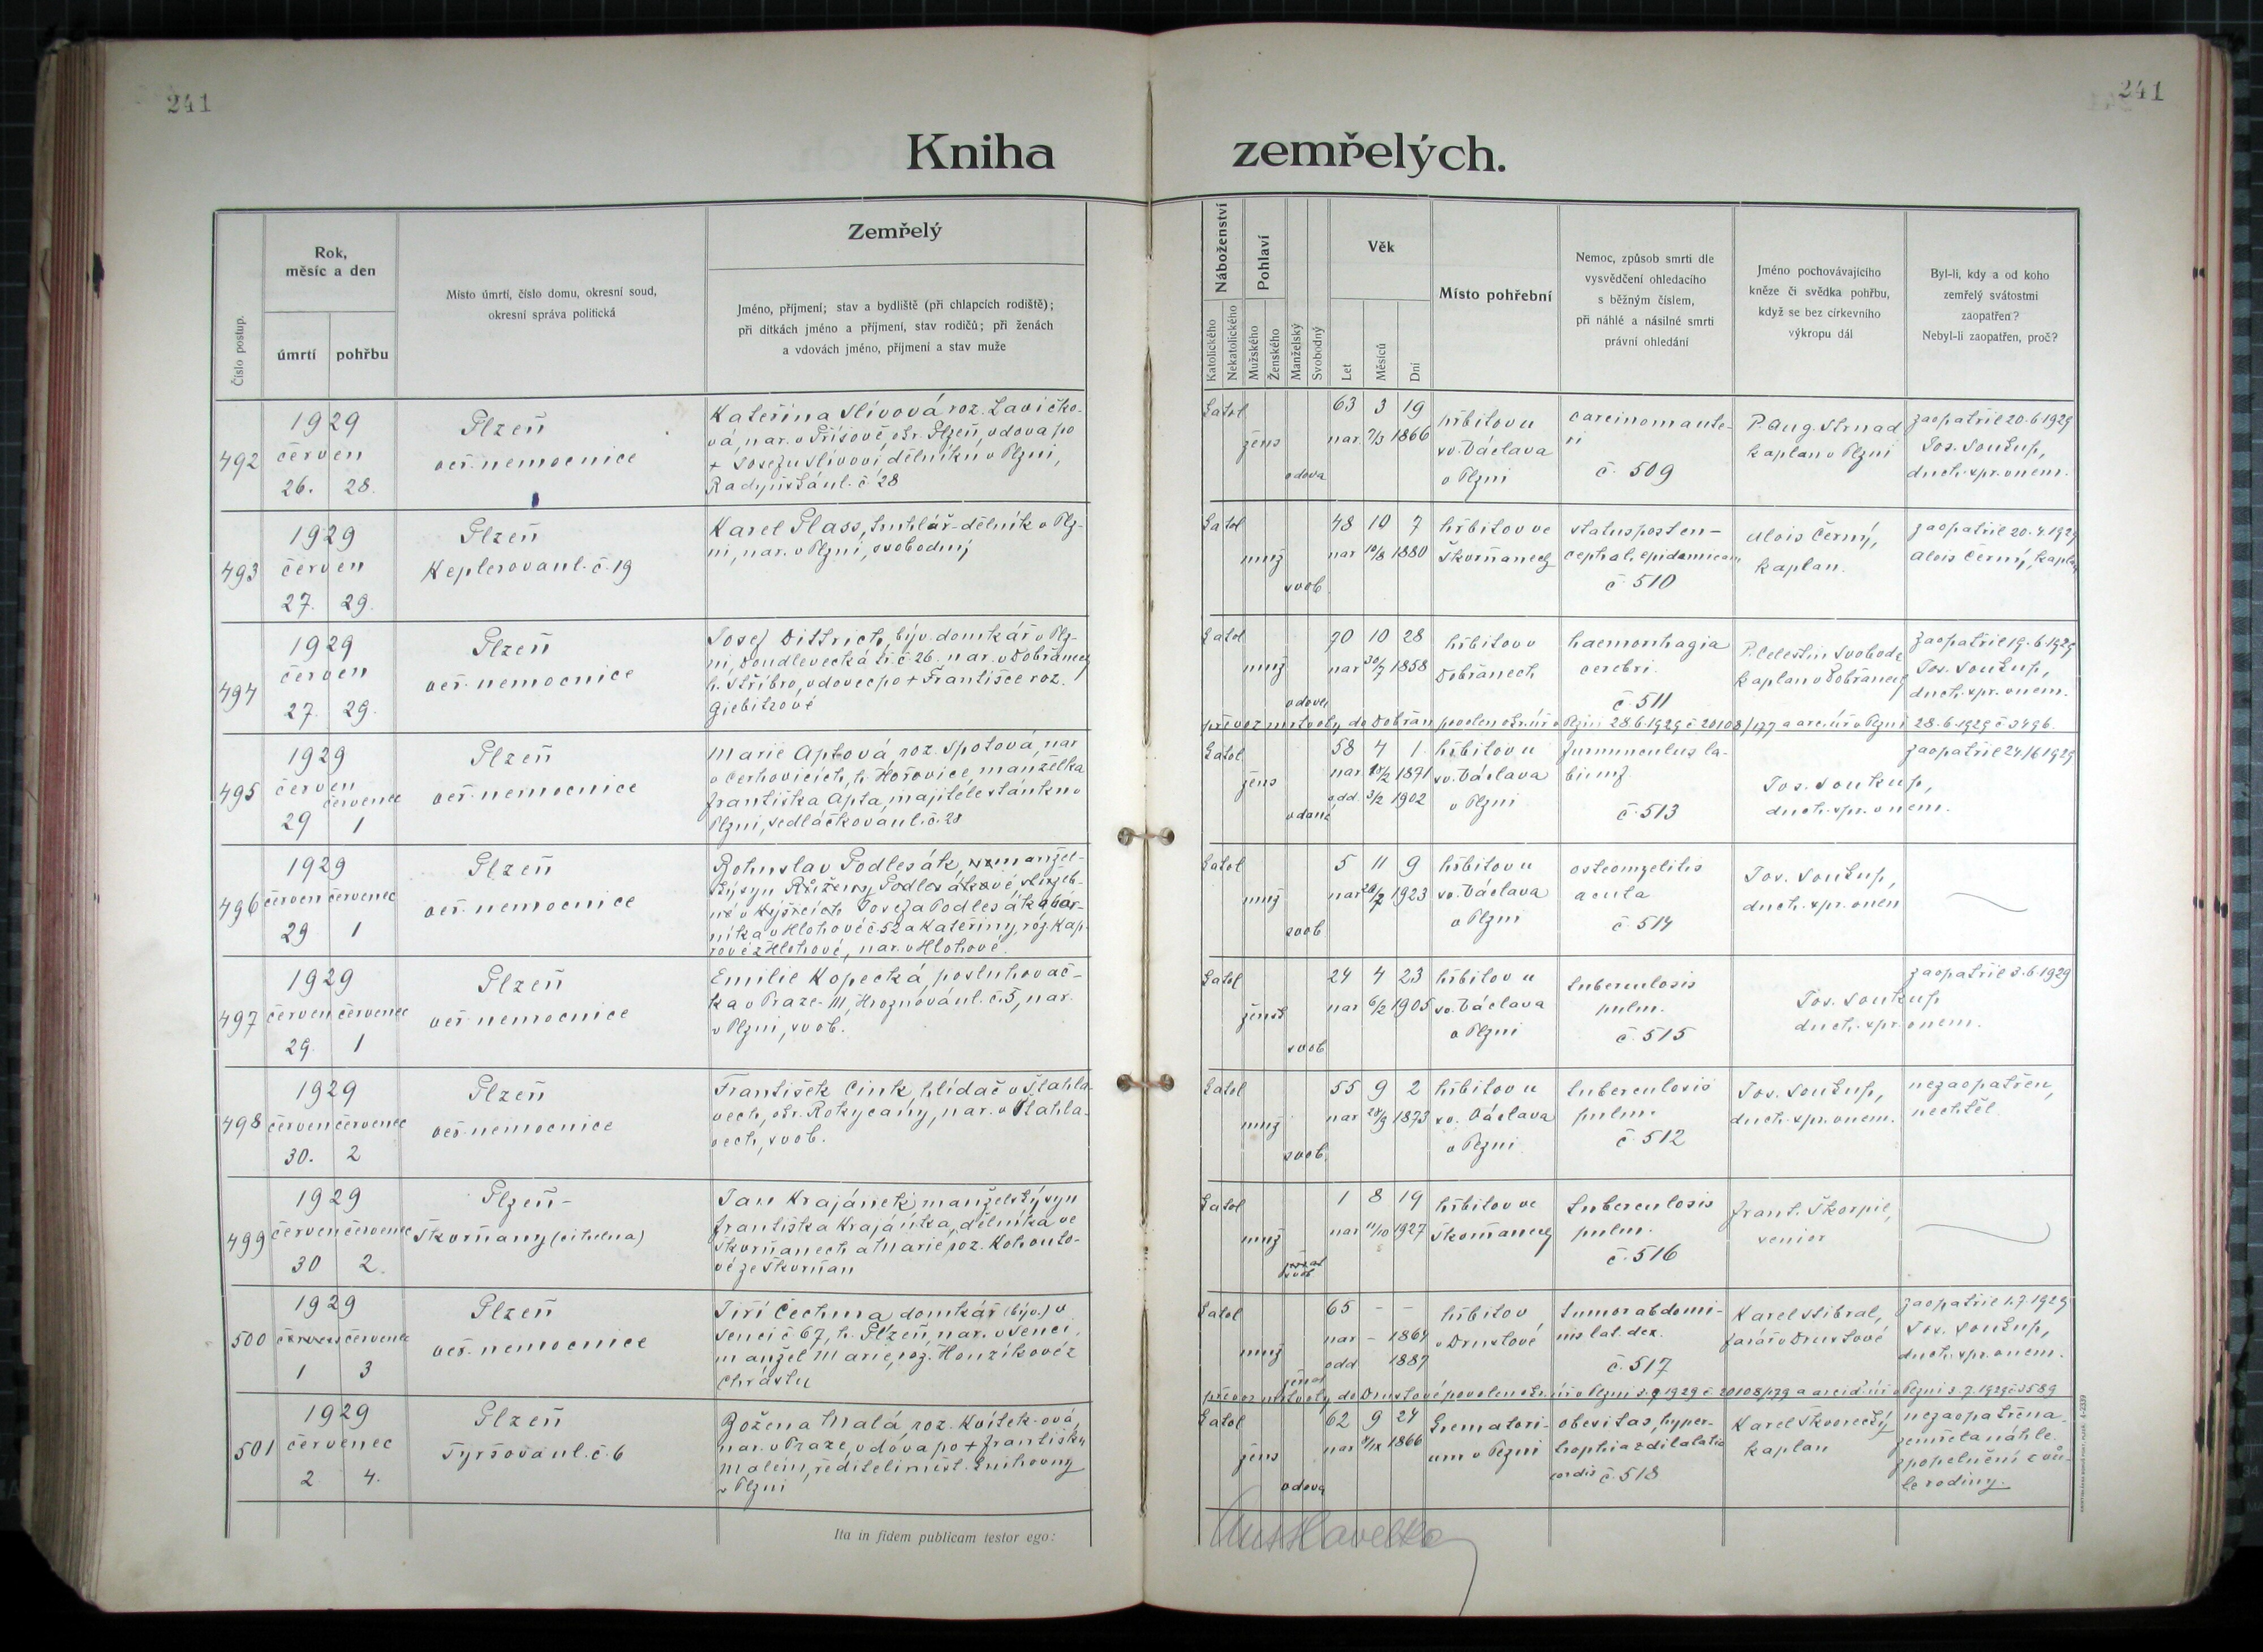 241
241
Kniha zemřelých.
Číslo postup.
Rok, měsíc a den
úmrtí
pohřbu
Místo úmrtí, číslo domu, okresní soud,
okresní správa politická
Zemřelý
Jméno, příjmení; stav a bydliště (při chlapcích rodiště);
při dítkách jméno a příjmení, stav rodičů; při ženách
a vdovách jméno, příjmení a stav muže
Náboženství
Katolického
Nekatolického
Pohlaví
Mužského
Ženského
Manželský
Svobodný
Věk
Let
Měsíců
Dní
Místo pohřební
Nemoc, způsob smrti dle
vysvědčení ohledacího
s běžným číslem,
při náhlé a násilné smrti
právní ohledání
Jméno pochovávajícího
kněze či svědka pohřbu,
když se bez církevního
výkropu dál
Byl-li, kdy a od koho
zemřelý svátostmi
zaopatřen?
Nebyl-li zaopatřen, proč?
492
1929
červen
26. 28.
Plzeň
veř. nemocnice
Kateřina Slívová roz. Lavičko-
vá, nar. v Příšově, okr. Plzeň, vdova po
+ Josefu Slívovi, dělníku v Plzni,
Radyňská ul. č. 28
katol
žens
vdova
63 3 19
nar. 7/3 1866
hřbitov u
sv. Václava
v Plzni
carcinoma ute-
ri
č. 509
P. Aug. Strnad
kaplan v Plzni
zaopatřil 20.6.1929
Jos. Soukup,
duch. spr. v nem.
493
1929
červen
27. 29.
Plzeň
Keplerova ul. č. 19
Karel Plass, truhlář-dělník v Plz-
ni, nar. v Plzni, svobodný
katol
muž
svob
48 10 7
nar 10/8 1880
hřbitov ve
Škvrňanech
status post en-
cephal. epidemicam
č. 510
Alois Černý,
kaplan.
zaopatřil 20.4.1929
Alois Černý, kaplan
494
1929
červen
27. 29.
Plzeň
veř. nemocnice
Josef Dittrich, býv. domkář v Plz-
ni, Doudlevecká tř. č. 26. nar. v Dobřanech
h. Stříbro, vdovec po + Františce roz.
Giebitzové
katol
muž
vdovec
70 10 28
nar 30/7 1858
hřbitov v
Dobřanech
haemorrhagia
cerebri.
č. 511
P. Celestin Svoboda
kaplan v Dobřanech
zaopatřil 19.6.1929
Jos. Soukup,
duch. spr. v nem.
převoz mrtvoly do Dobřan povolen okr. úř. v Plzni 28.6.1929 č. 20108/177 a arc. úř. v Plzni 28.6.1929 č. 3496.
495
1929
červen
červenec
29 1
Plzeň
veř. nemocnice
Marie Aptová, roz. Spotová, nar
v Cerhovicích, h. Hořovice, manželka
Františka Apta, majitele stánku v
Plzni, Sedláčkova ul. č. 28
katol
žens
vdaná
58 4 1.
nar. 28/2 1871
odd. 3/2 1902
hřbitov u
sv. Václava
v Plzni
furunculus la-
biumz
č. 513
Jos. Soukup,
duch. spr. v nem.
zaopatřil 24/6 1929
496
1929
červen červenec
29 1
Plzeň
veř. nemocnice
Bohuslav Podlesák, nemanžel-
ský syn Růženy Podlesákové služeb-
né v Kyšicích Josefa Podlesáka bar-
níka v Hlohové č. 52 a Kateřiny, roz. Kap-
rové z Hlohové, nar. v Hlohové.
katol
muž
svob
5 11 9
nar 20/7 1923
hřbitov u
sv. Václava
v Plzni
osteomyelitis
acuta
č. 514
Jos. Soukup,
duch. spr. v nem
497
1929
červen červenec
29. 1
Plzeň
veř. nemocnice
Emilie Kopecká, posluhovač-
ka v Praze-III, Hroznová ul. č. 5, nar.
v Plzni, svob.
katol
žensk
svob
24 4 23
nar 6/2 1905
hřbitov u
sv. Václava
v Plzni
tuberculosis
pulm.
č. 515
Jos. Soukup
duch. spr. v nem.
zaopatřil 3.6.1929
498
1929
červen červenec
30. 2
Plzeň
veř. nemocnice
František Cink, hlídač v Šťahla-
vech, okr. Rokycany, nar. v Šťahla-
vech, svob.
katol
muž
svob.
55 9 2
nar 28/9 1873
hřbitov u
sv. Václava
v Plzni
tuberculosis
pulm.
č. 512
Jos. Soukup,
duch. spr. v nem.
nezaopatřen,
nechtěl.
499
1929
červen červenec
30 2.
Plzeň-
Škvrňany (cihelna)
Jan Krajánek, manželský syn
Františka Krajánka, dělníka ve
Škvrňanech a Marie roz. Kohouto-
vé ze Škvrňan
katol
muž
svob
1 8 19
nar 11/10 1927
hřbitov ve
Škvrňanech
tuberculosis
pulm.
č. 516
Frant. Škorpil,
senior
500
1929
červenec
1 3
Plzeň
veř. nemocnice
Jiří Čechma domkář (býv.) v
Senci č 67, h. Plzeň, nar. v Senci,
manžel Marie, roz. Honzíkové z
Chrástu
katol
muž
ženat
65 - -
nar - 1864
odd 1887
hřbitov
v Druztové
tumor abdomi-
nis lat. dex.
č. 517
Karel Stibral,
farář v Druztové
zaopatřil 1.7.1929
Jos. Soukup,
duch. spr. v nem.
převoz mrtvoly do Druztové povolen okr. úř. v Plzni 2.7 1929 č. 20108/179 a arcid. úř. v Plzni 2.7.1929 č. 3589
501
1929
červenec
2 4.
Plzeň
Tyršova ul. č. 6
Božena Malá, roz. Kvítek-ová,
nar. v Praze, vdova po + Františku
Malém, řediteli měst. knihovny
v Plzni
katol
žens
vdova
62 9 24
nar 8/IX 1866
Krematori-
um v Plzni
obesitas, hyper-
trophia z dilatatio
cordis č. 518
Karel Škvorecký
kaplan
nezaopatřena
zemřela náhle.
zpopelnění z vů-
le rodiny.
Ita in fidem publicam testor ego: